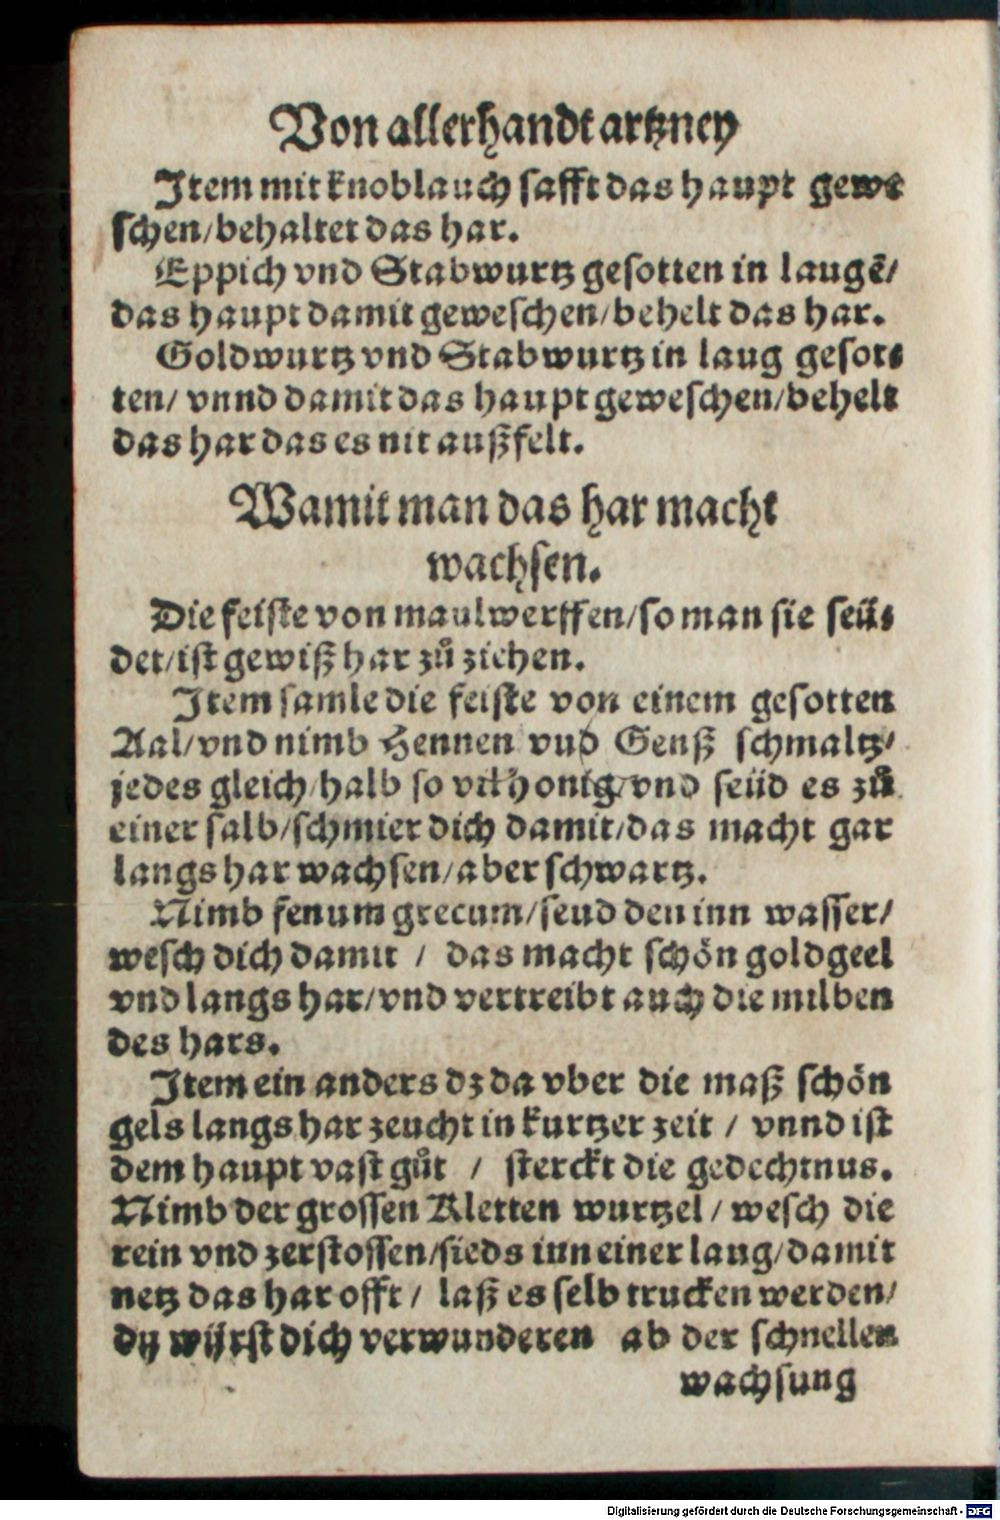 Von allerhandt artzney
Item mit knoblauch safft das haupt gewe
schen/behaltet das har.
Eppich vnd Stabwurtz gesotten in laugē/
das haupt damit geweschen/behelt das har.
Goldwurtz vnd Stabwurtz in laug gesot⸗
ten/ vnnd damit das haupt geweschen/behelt
das har das es nit außfelt.
Wamit man das har macht
wachsen.
Die feiste von maulwerffen/so man sie seü⸗
det/ist gewiß har zů ziehen.
Item samle die feiste von einem gesotten
Aal/vnd nimb Hennen vnd Genß schmaltz/
jedes gleich/halb so vil honig/vnd seüd es zů
einer salb/schmier dich damit/das macht gar
langs har wachsen/aber schwartz.
Nimb fenum grecum/seud den inn wasser/
wesch dich damit / das macht schön goldgeel
vnd langs har/vnd vertreibt auch die milben
des hars.
Item ein anders dz da vber die maß schön
gels langs har zeucht in kurtzer zeit / vnnd ist
dem haupt vast gůt / sterckt die gedechtnus.
Nimb der grossen Kletten wurtzel / wesch die
rein vnd zerstossen/sieds inn einer laug/damit
netz das har offt / laß es selb trucken werden/
dů würst dich verwunderen ab der schnellen
wachsung
Digitalisierung gefördert durch die Deutsche Forschungsgemeinschaft - DFG